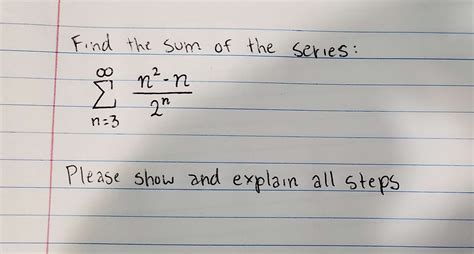 Find the sum of the series:
∞
∑ n²-n / 2ⁿ
n=3
Please show and explain all steps